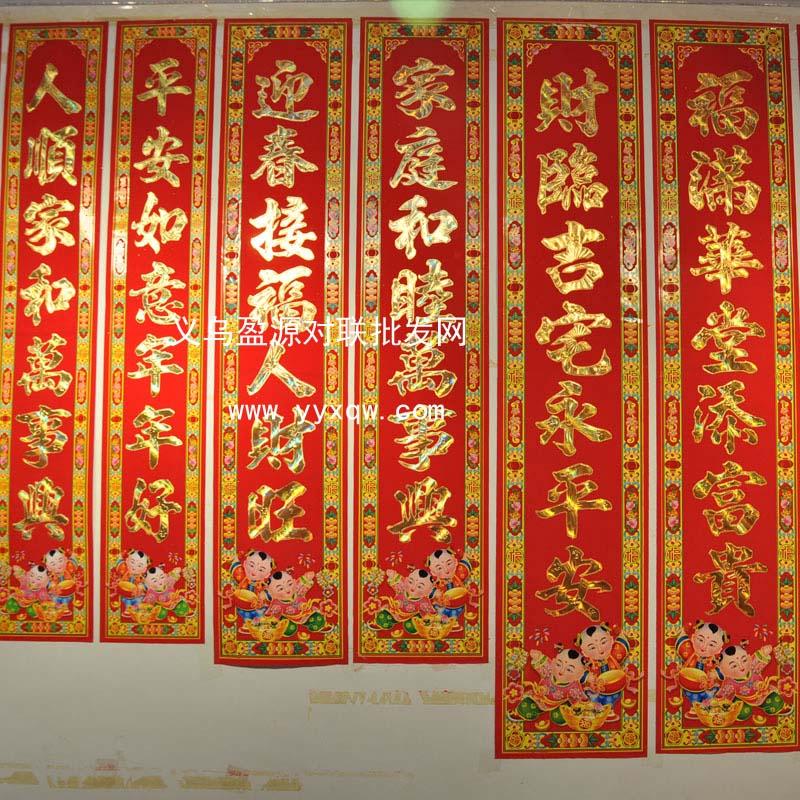 人順家和萬事興
平安如意年年好
迎春接福人財旺
家庭和睦萬事興
財臨吉宅永平安
福滿華堂添富貴
义乌盈源对联批发网
www.yyxqw.com